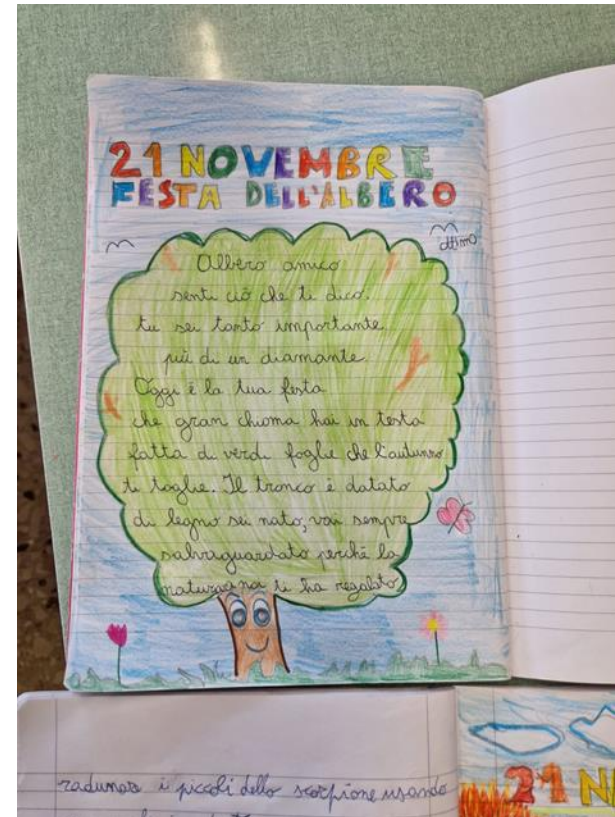 21 NOVEMBRE
FESTA DELL'ALBERO
ottimo
Albero amico
senti ciò che ti dico.
tu sei tanto importante
più di un diamante.
Oggi è la tua festa
che gran chioma hai in testa
fatta di verdi foglie che l'autunno
ti toglie. Il tronco è datato
di legno sei nato, vai sempre
salvaguardato perché la
natura a noi ti ha regalato
radunare i piccoli dello scorpione usando
21 N